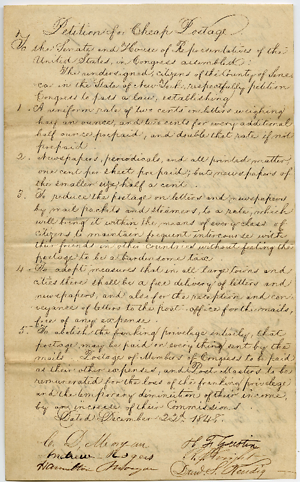 Petition for Cheap Postage
To the Senate and House of Representatives of the
United States, in Congress assembled:
The undersigned, citizens of the County of Sene-
ca in the State of New York, respectfully petition
Congress to pass a law, establishing
1. A uniform rate of two cents on letters weighing
half an ounce, and two cents for every additional
half ounce prepaid, and double that rate if not
prepaid.
2. Newspapers, periodicals, and all printed matter,
one cent per sheet for paid; but newspapers of
the smaller size half a cent.
3. To reduce the postage on letters and newspapers
by mail packets and steamers, to a rate, which
will bring it within the means of every class of
citizens to maintain frequent intercourse with
their friends in other Countries without feeling the
postage to be a burdensome tax
4. To adopt measures that in all large towns and
cities there shall be a free delivery of letters and
newspapers, and also for the reception and con-
veyance of letters to the post-office for the mails,
free of any expense.
5. To abolish the franking privilege entirely, that
postage may be paid on every thing sent by the
mails. Postage of Members of Congress to be paid
as their other expenses, and Post-Masters to be
remunerated for the loss of the franking privilege
and the temporary diminution of their income,
by an increase of their Commissions.
Dated December 22d. 1848.
Andrew Rogers